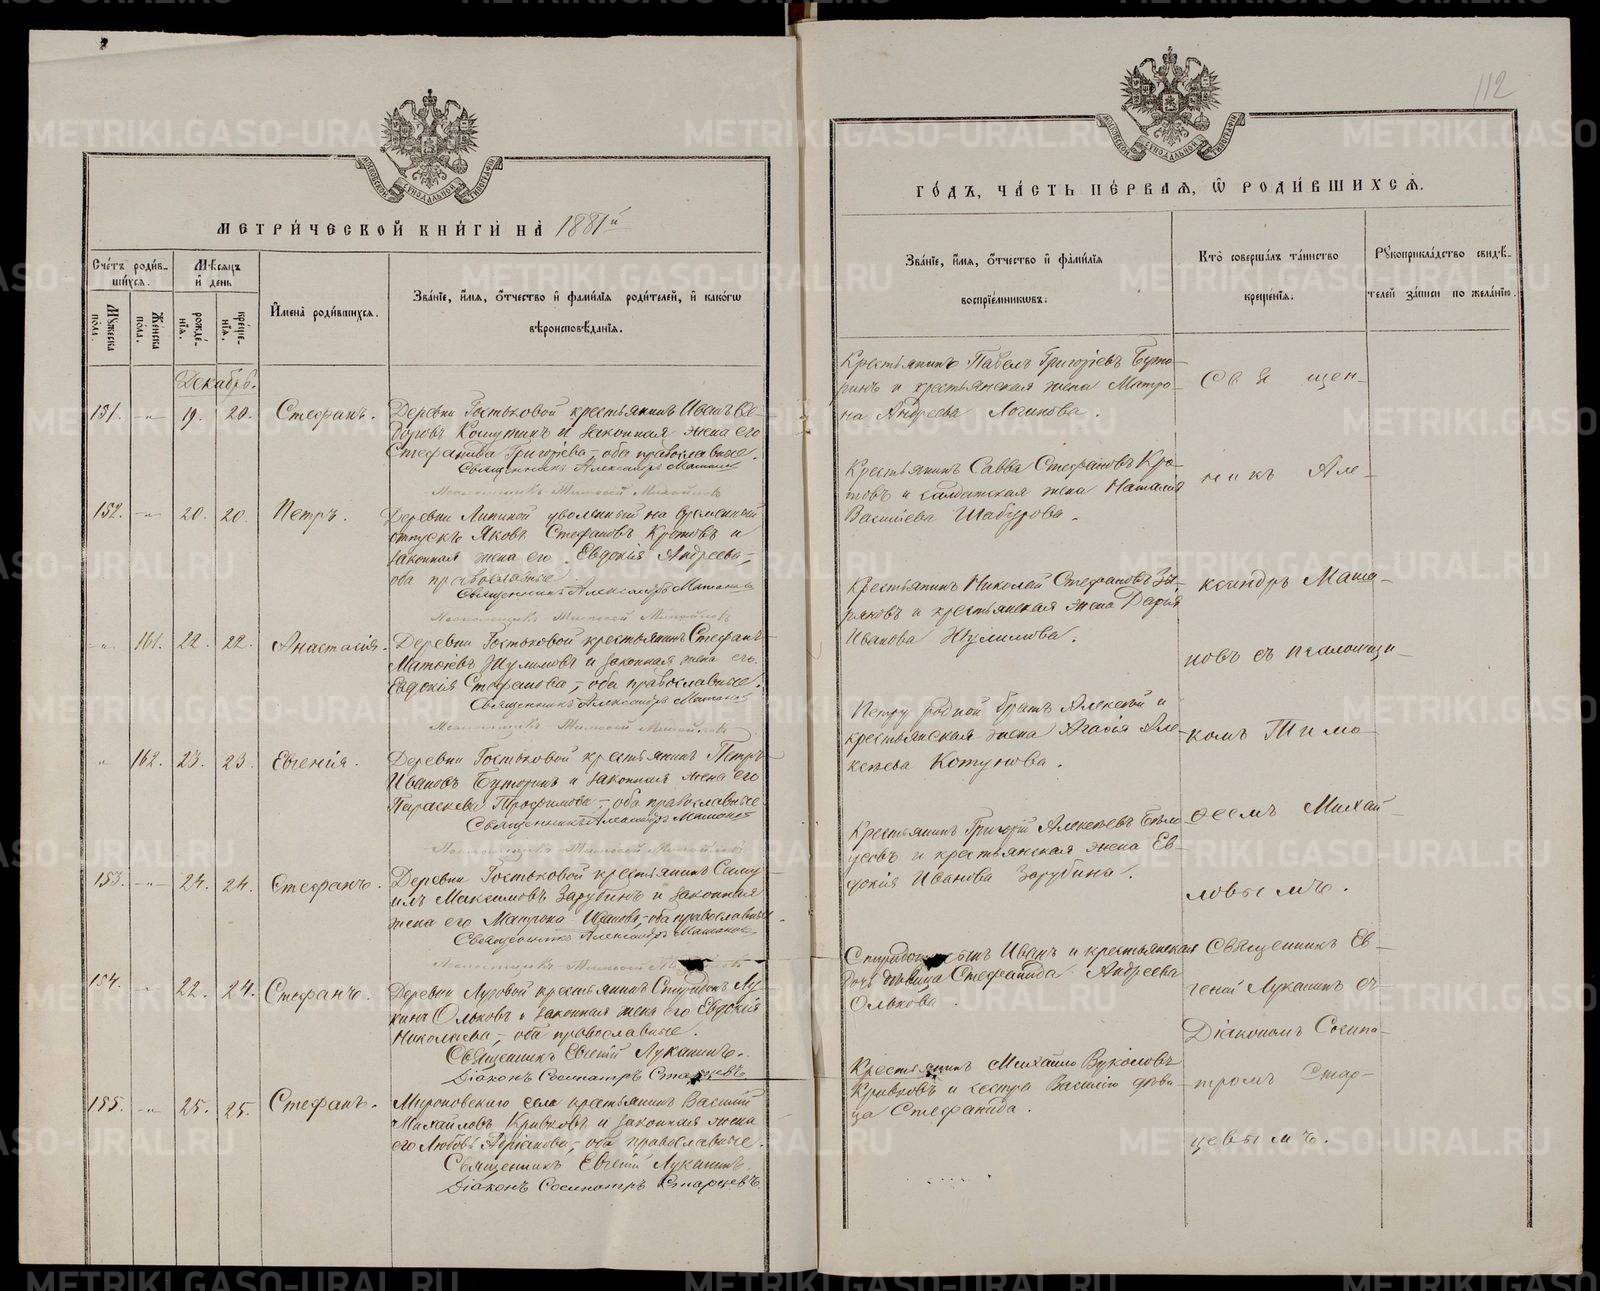 112
МОСКОВСКОЙ СУНОДАЛЬНОЙ ТИПОГРАФІИ
МЕТРИ́ЧЕСКОЙ КНИ́ГИ НА̀ 1881й
Сче́тъ роди́в-
ши́хся.
Мѣ́сяцъ
и҆ день
Му́жеска
по́ла.
Же́нска
по́ла.
рожде́-
нїѧ.
креще́-
нїѧ.
И҆мена̀ роди́вшихсѧ.
Зва́нїе, и҆́мѧ, ѻ҆́тчество и҆ фами́лїѧ роди́телей, и҆ како́гѡ
вѣроисповѣ́данїѧ.
Декабрь.
151. -„- 19. 20. Стефанъ.
Деревни Гостьковой крестьянинъ Иванъ Ѳе-
доровъ Кошутинъ и законная жена его
Стефанида Григорьева, - оба православные.
Священникъ Александръ Машановъ
Псаломщикъ Тимоѳей Михайловъ
152. -„- 20. 20. Петръ.
Деревни Липиной уволенный на временный
отпускъ Яковъ Стефановъ Кротовъ и
законная жена его Евдокія Андреева, -
оба православные
Священникъ Александръ Машановъ
Псаломщикъ Тимоѳей Михайловъ
-„- 161. 22. 22. Анастасія.
Деревни Гостьковой крестьянинъ Стефанъ
Матвѣевъ Шулимовъ и законная жена его
Евдокія Стефанова, - оба православные.
Священникъ Александръ Машановъ
Псаломщикъ Тимоѳей Михайловъ
„ 162. 23. 23. Евгенія.
Деревни Гостьковой крестьянинъ Петръ
Ивановъ Буторинъ и законная жена его
Параскева Трофимова, - оба православные
Священникъ Александръ Машановъ
Псаломщикъ Тимоѳей Михайловъ
153. -„- 24. 24. Стефанъ.
Деревни Гостьковой крестьянинъ Саму-
илъ Максимовъ Зарубинъ и законная
жена его Матрона Иванова, - оба православные.
Священникъ Александръ Машановъ
Псаломщикъ Тимоѳей Михайловъ
154. „ 22. 24. Стефанъ.
Деревни Луговой крестьянинъ Спиридонъ Лу-
кинъ Ольковъ и законная жена его Евдокія
Николаева, - оба православные.
Священникъ Евгеній Луканинъ.
Діаконъ Сосипатръ Старцевъ
155. -„- 25. 25. Стефанъ.
Мироновскаго села крестьянинъ Василій
Михайловъ Кривковъ и законная жена
его Любовь Адріанова, - оба православные.
Священникъ Евгеній Луканинъ.
Діаконъ Сосипатръ Старцевъ
МОСКОВСКОЙ СУНОДАЛЬНОЙ ТИПОГРАФІИ
ГО́ДЪ, ЧА́СТЬ ПЕ́РВАЯ, Ѡ҆ РОДИ́ВШИХСЯ.
Зва́нїе, и҆́мѧ, ѻ҆́тчество и҆ фами́лїѧ
воспрїе́мникѡвъ.
Кто̀ соверша́лъ та́инство
креще́нїѧ.
Рꙋкоприкла́дство свидѣ́-
телей за́писи по жела́нїю.
Крестьянинъ Павелъ Григорьевъ Буто-
ринъ и крестьянская жена Матро-
на Андреева Логинова.
Крестьянинъ Савва Стефановъ Кро-
товъ и солдатская жена Наталія
Васильева Шабурова.
Крестьянинъ Николай Стефановъ Зы-
ряновъ и крестьянская жена Дарія
Иванова Шулимова.
Петру родной братъ Алексѣй и
крестьянская жена Агафія Але-
ксѣева Котунова.
Крестьянинъ Григорій Алексѣевъ Бѣло-
усовъ и крестьянская жена Ев-
докія Иванова Зарубина.
Спиридона сынъ Иванъ и крестьянская
дочь дѣвица Стефанида Андреева
Олькова.
Крестьянинъ Михаилъ Вуколовъ
Кривковъ и сестра Василію дѣви-
ца Стефанида.
Священ-
никъ Але-
ксандръ Маша-
новъ съ псаломщи-
комъ Тимо-
ѳеемъ Михай-
ловымъ.
Священникъ Ев-
геній Луканинъ съ
Діакономъ Сосипа-
тромъ Стар-
цевымъ.
METRIKI.GASO-URAL.RU